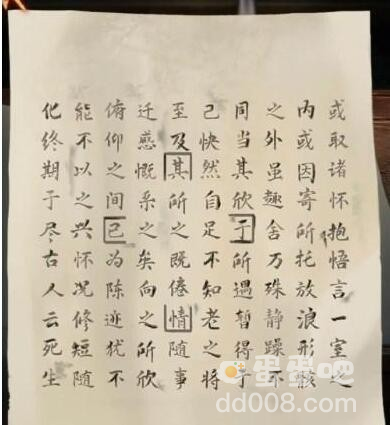 或取诸怀抱悟言一室之
内或因寄所托放浪形骸
之外虽趣舍万殊静躁不
同当其欣于所遇暂得于
己快然自足不知老之将
至及其所之既倦情随事
迁感慨系之矣向之所欣
俯仰之间已为陈迹犹不
能不以之兴怀况修短随
化终期于尽古人云死生
蛋蛋吧
dd008.com